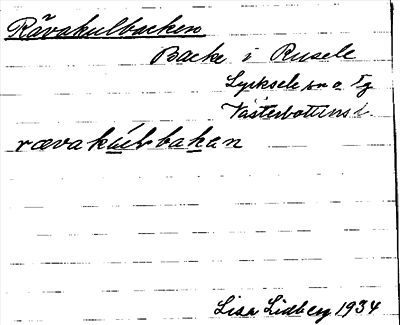 Rävakulbacken
Backe i Rusele
Lycksele sn o tg
Västerbottens l.
rævakulbakan
Lisa Lidberg 1934